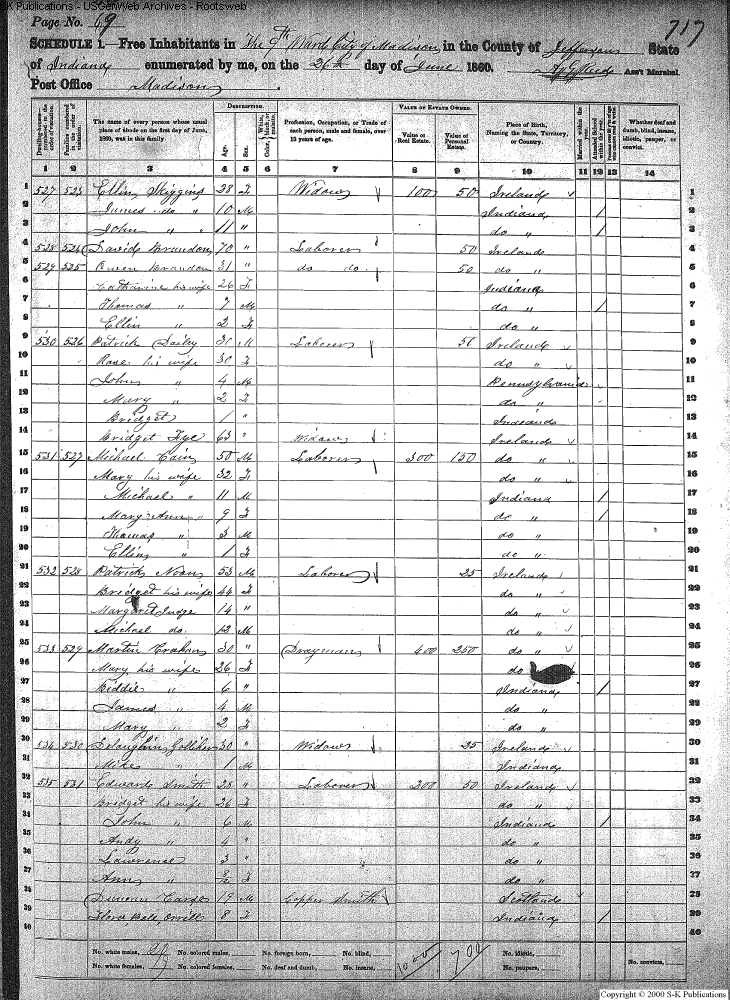 S-K Publications - USGenWeb Archives - Rootsweb
Page No. 69
717
SCHEDULE 1.—Free Inhabitants in The 5th Ward City of Madison, in the County of Jefferson State
of Indiana enumerated by me, on the 26th day of June 1860. Ass't Marshal
Post Office Madison.
Dwelling-houses— numbered in the order of visitation.
Families numbered in the order of visitation.
The name of every person whose usual place of abode on the first day of June, 1860, was in this family.
DESCRIPTION.
Age.
Sex.
Color, White, black, or mulatto.
Profession, Occupation, or Trade of each person, male and female, over 15 years of age.
VALUE OF ESTATE OWNED.
Value of Real Estate.
Value of Personal Estate.
Place of Birth, Naming the State, Territory, or Country.
Married within the year.
Attended School within the year.
Whether deaf and dumb, blind, insane, idiotic, pauper, or convict.
1 2 3 4 5 6 7 8 9 10 11 12 13 14
1 527 523 Ellin 28 F Widow 100 50 Ireland 1
2 James do " 10 M Indiana / 2
3 John " 11 " do " / 3
4 528 524 David Brandon 70 " Laborer 50 Ireland 4
5 529 525 Owen Brandon 31 " do do 50 do " 5
6 Catharine his wife 26 F Indiana 6
7 Thomas " 7 M do " / 7
8 Ellin " 2 F do " 8
9 530 526 Patrick Dailey 31 M Laborer 50 Ireland 9
10 Rose his wife 30 F do " 10
11 John " 4 M Pennsylvania 11
12 Mary " 2 F do " 12
13 Bridget 1 " Indiana 13
14 Bridget 63 " Widow Ireland 14
15 531 527 Michael Cain 50 M Laborer 300 150 do " 15
16 Mary his wife 32 F do " 16
17 Michael " 11 M Indiana / 17
18 Mary Ann " 9 F do " / 18
19 Thomas " 3 M do " 19
20 Ellin " 1 F do " 20
21 532 528 Patrick Noon 53 M Laborer 25 Ireland 21
22 Bridget his wife 44 F do " 22
23 Margaret Judge 14 " do " 23
24 Michael do. 12 M do " 24
25 533 529 Martin Graham 30 " Drayman 400 250 do " 25
26 Mary his wife 26 F do 26
27 Biddie " 6 " Indiana / 27
28 James " 4 M do " 28
29 Mary " 2 F do " 29
30 534 530 30 " Widow 25 Ireland 30
31 Mike " 1 M Indiana 31
32 535 531 Edward Smith 28 " Laborer 200 50 Ireland 32
33 Bridget his wife 26 F do " 33
34 John " 6 M Indiana / 34
35 Andy " 4 " do " 35
36 Lawrence 3 " do " 36
37 Ann " F do " 37
38 Duncan 19 M Copper Smith Scotland 38
39 8 F Indiana / 39
40 40
No. white males, No. colored males, No. foreign born, No. blind, 1000 700 No. idiotic,
No. white females, No. colored females, No. deaf and dumb, No. insane, No. paupers, No. convicts,
Copyright © 2000 S-K Publications